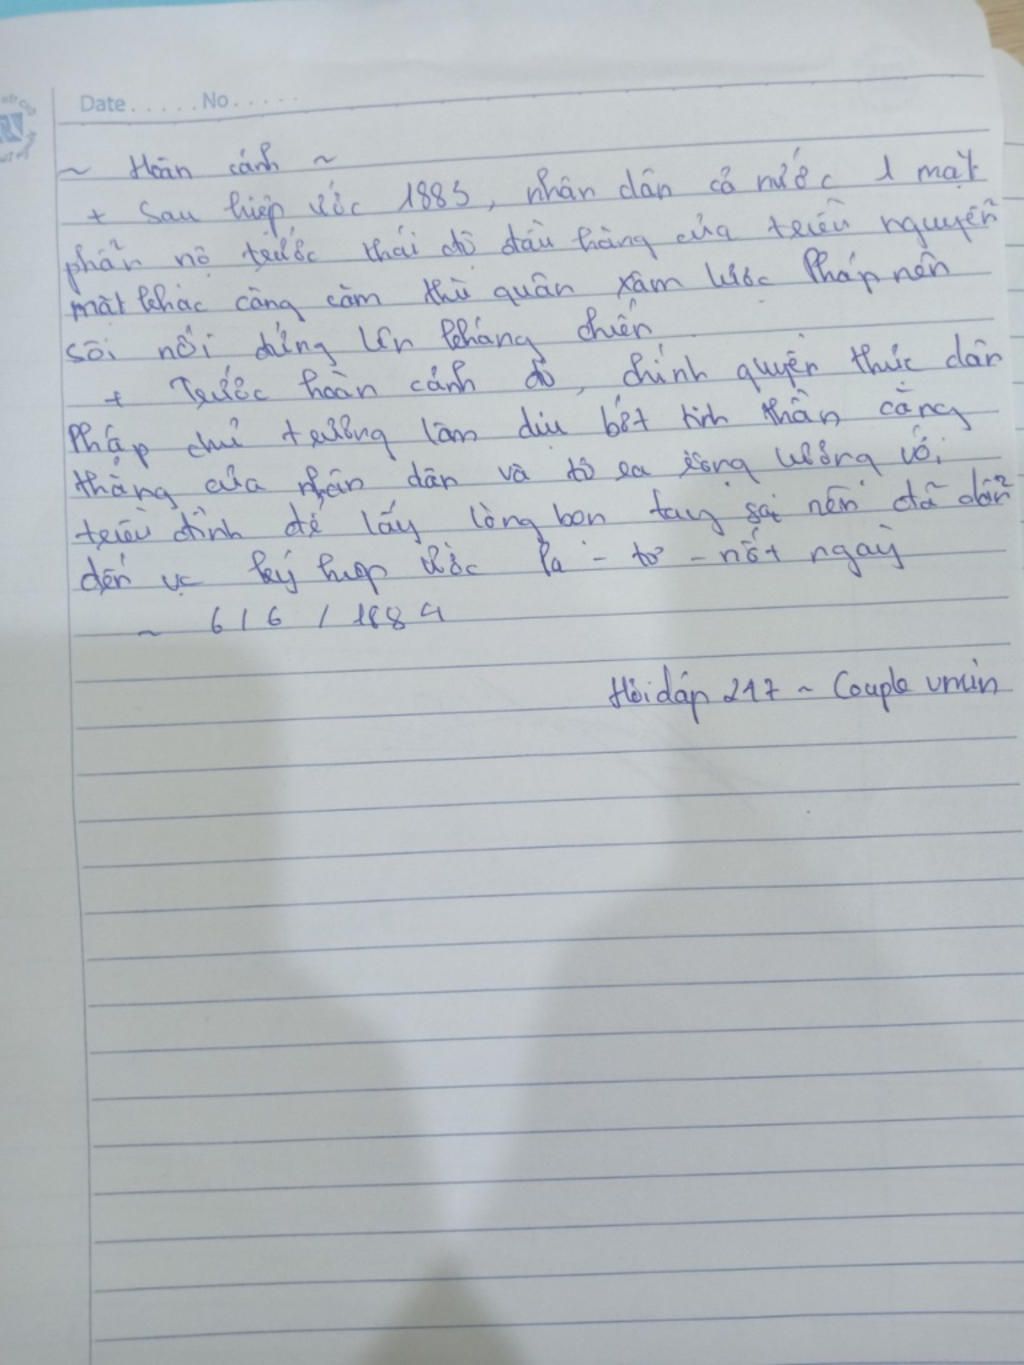 Date.....No.....
~ Hoàn cảnh ~
+ Sau hiệp ước 1883, nhân dân cả nước 1 mặt
phẫn nộ trước thái độ đầu hàng của triều nguyễn
mặt khác càng căm thù quân xâm lược Pháp nên
sôi nổi đứng lên kháng chiến
+ Trước hoàn cảnh đó, chính quyền thực dân
Pháp chủ trương làm dịu bớt tinh thần căng
thẳng của nhân dân và tỏ ra nhượng với
triều đình để lấy lòng bọn tay sai nên đã dẫn
đến vc ký hiệp ước Pa - tơ - nốt ngày
~ 6/6/1884
Hỏi đáp 247 ~ Couple vmin